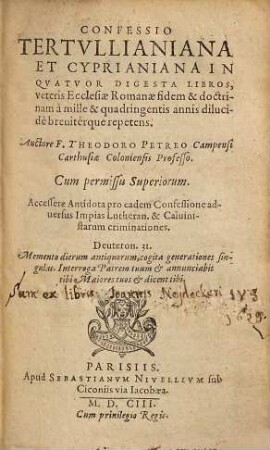 CONFESSIO
TERTVLLIANIANA
ET CYPRIANIANA IN
QVATVOR DIGESTA LIBROS,
veteris Ecclesiæ Romanæ fidem & doctri-
nam à mille & quadringentis annis diluci-
dè breuitérque repetens.
Auctore F. THEODORO PETREO Campensi
Carthusiæ Coloniensis Professo.
Cum permissu Superiorum.
Accessere Antidota pro eadem Confessione ad-
uersus Impias Lutheran. & Caluini-
starum criminationes.
Deuteron. 32.
Memento dierum antiquorum, cogita generationes sin-
gulas. Interroga Patrem tuum & annunciabit
tibi: Maiores tuos & dicent tibi.
Sum ex libris Joannis
1639.
PARISIIS.
Apud SEBASTIANVM NIVELLIVM sub
Ciconiis via Iacobæa.
M. D. CIII.
Cum privilegio Regis.